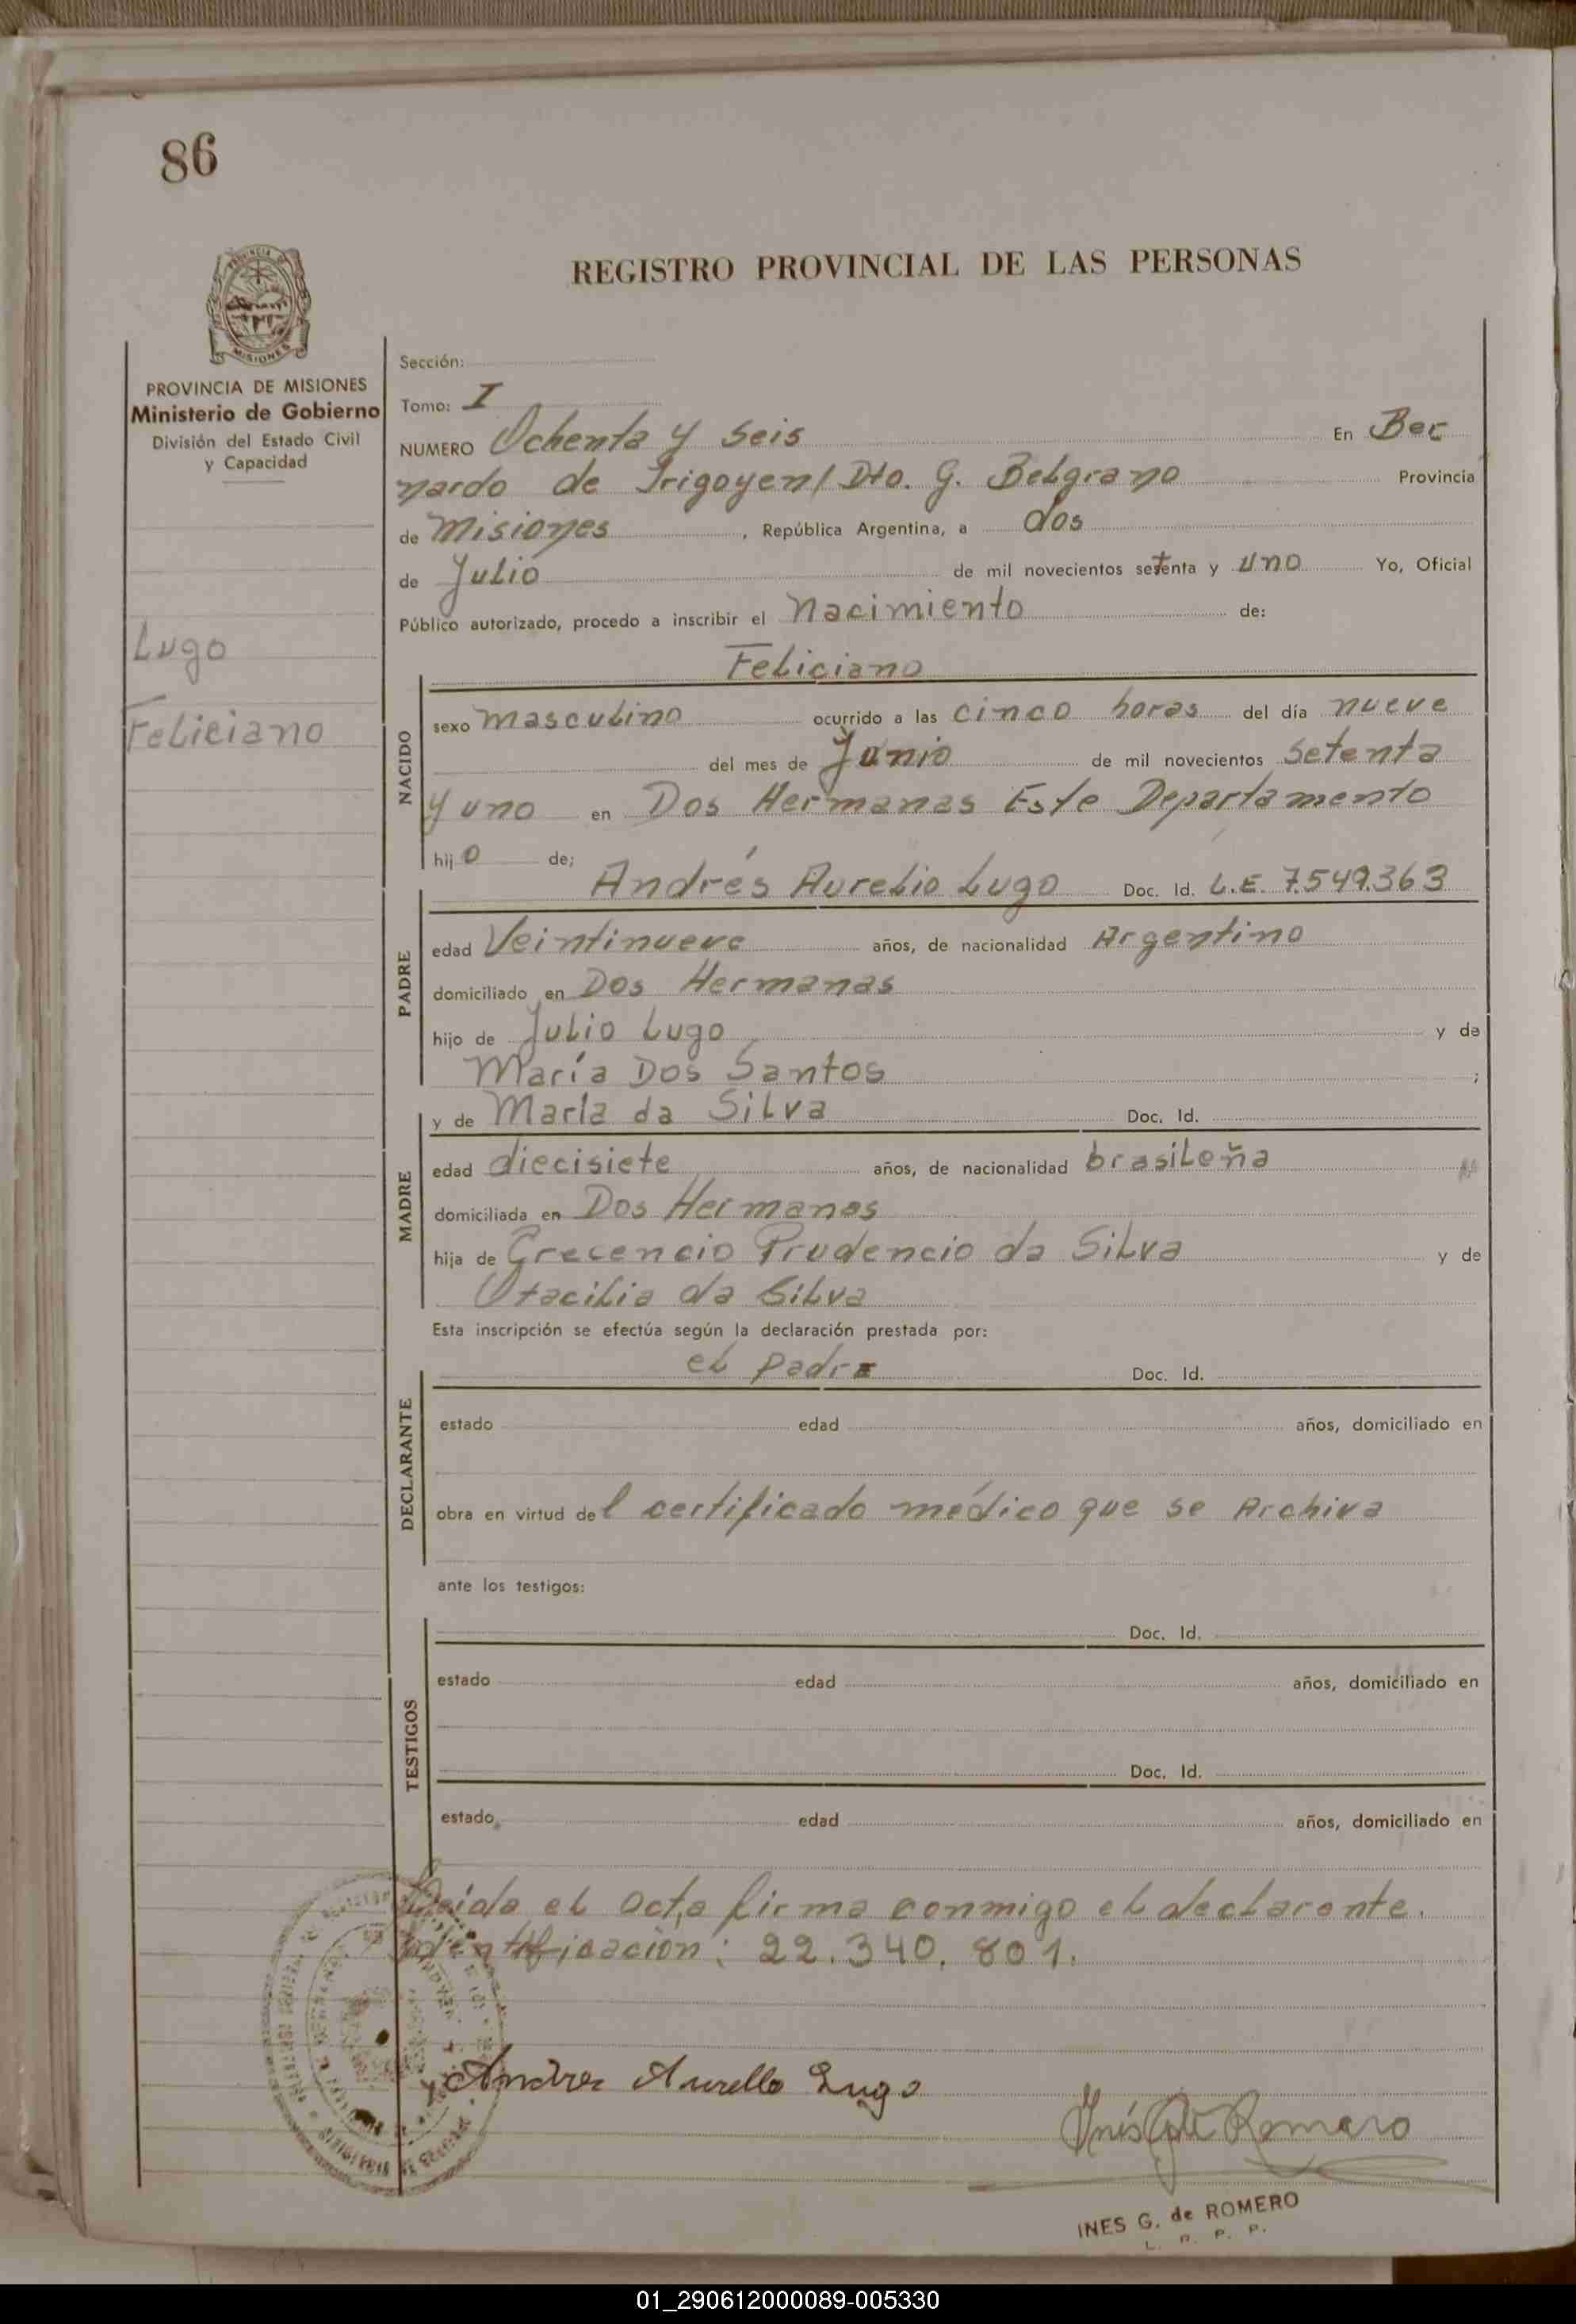 86
REGISTRO PROVINCIAL DE LAS PERSONAS
MISIONES
PROVINCIA DE MISIONES
Ministerio de Gobierno
División del Estado Civil
y Capacidad
Lugo
Feliciano
Sección:
Tomo: I
NUMERO Ochenta y Seis En Ber
nardo de Irigoyen/Dto. G. Belgrano Provincia
de Misiones, República Argentina, a dos
de Julio de mil novecientos setenta y uno Yo, Oficial
Público autorizado, procedo a inscribir el Nacimiento de:
Feliciano
NACIDO
sexo masculino ocurrido a las cinco horas del día nueve
del mes de Junio de mil novecientos setenta
y uno en Dos Hermanas Este Departamento
hijo de;
Andrés Aurelio Lugo Doc. Id. L.E. 7.549.363
PADRE
edad Veintinueve años, de nacionalidad Argentino
domiciliado en Dos Hermanas
hijo de Julio Lugo y de
María Dos Santos ;
y de María da Silva Doc. Id.
MADRE
edad diecisiete años, de nacionalidad brasileña
domiciliada en Dos Hermanas
hija de Crecencio Prudencio da Silva y de
Otacilia da Silva
Esta inscripción se efectúa según la declaración prestada por:
el padre Doc. Id.
DECLARANTE
estado edad años, domiciliado en
obra en virtud del certificado médico que se Archiva
ante los testigos:
Doc. Id.
TESTIGOS
estado edad años, domiciliado en
Doc. Id.
estado edad años, domiciliado en
Leída el acta firma conmigo el declarante.
Identificación: 22.340.801.
Andres Aurelio Lugo
Inés G. de Romero
INES G. de ROMERO
01_290612000089-005330